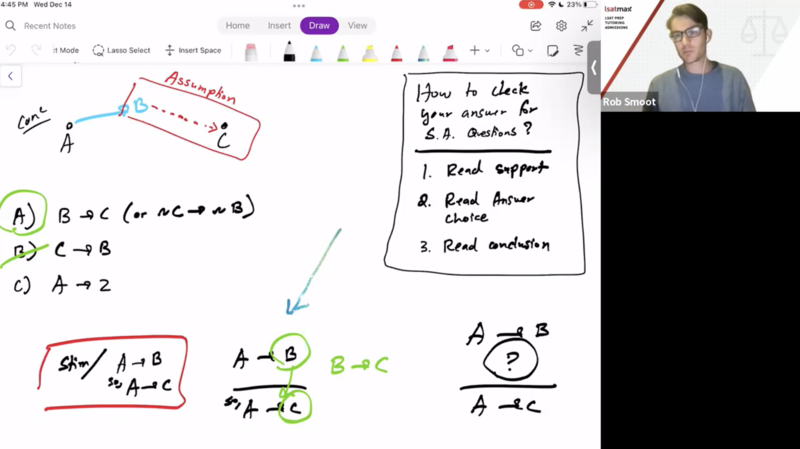 4:45 PM Wed Dec 14
23%
Recent Notes
Home
Insert
Draw
View
it Mode
Lasso Select
Insert Space
lsatmax
LSAT PREP
TUTORING
ADMISSIONS
Rob Smoot
Assumption
B
A
C
How to check
your answer for
S.A. Questions?
1. Read support
2. Read Answer
choice
3. Read conclusion
A) B → C (or ~C → ~B)
B) C → B
C) A → Z
Stim/ A → B
so, A → C
A → B
so, A → C
B → C
A → B
?
A → C